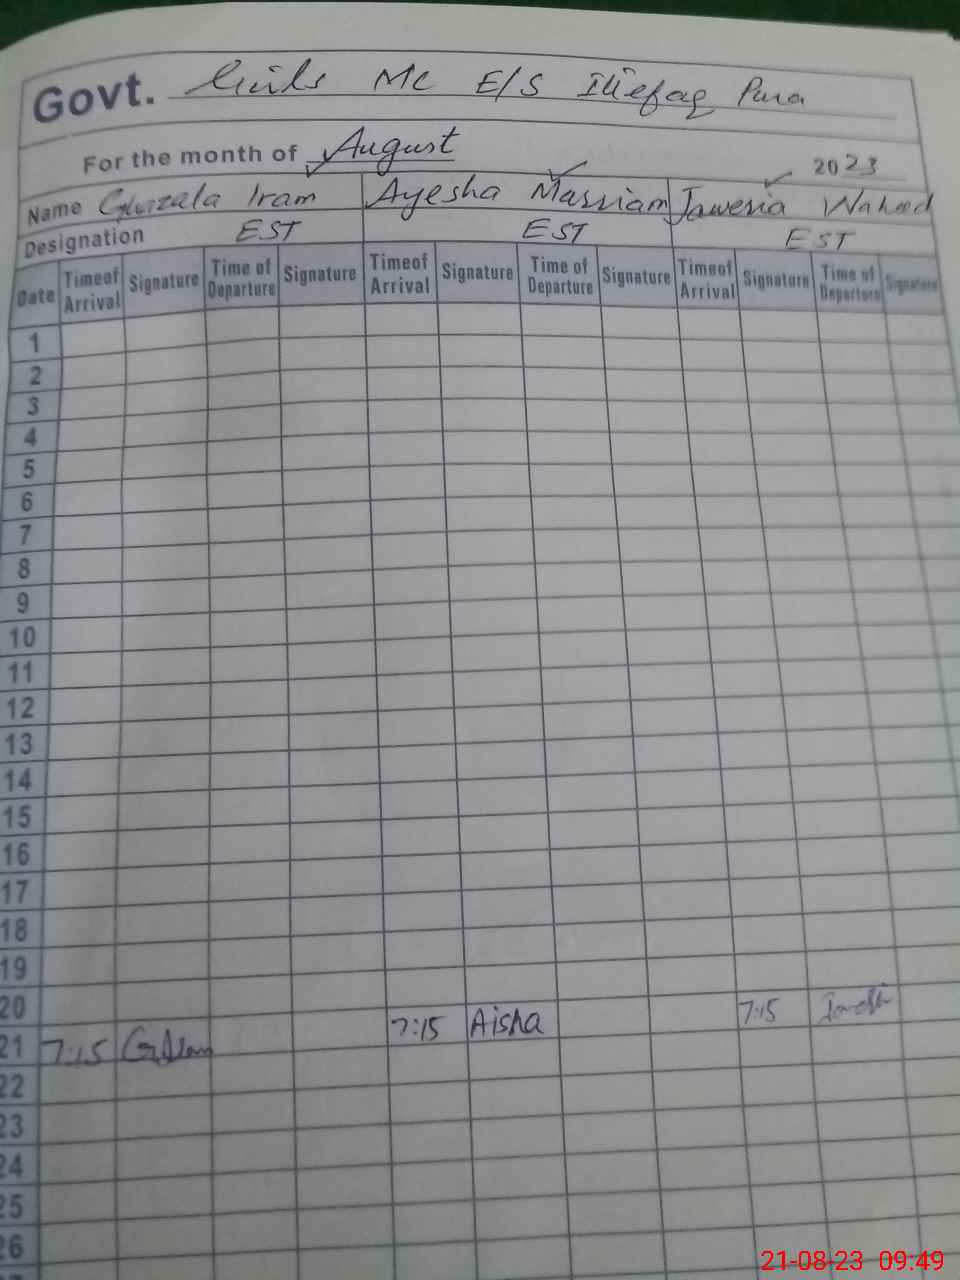 Govt. Girls MC E/S Ittefaq Pura
For the month of August 2023
Name Ghazala Iram Ayesha Marriam Jaweria Waheed
Designation EST EST EST
Date Timeof Arrival Signature Time of Departure Signature Timeof Arrival Signature Time of Departure Signature Timeof Arrival Signature Time of Departure Signature
1
2
3
4
5
6
7
8
9
10
11
12
13
14
15
16
17
18
19
20
21 7:15 7:15 Aisha 7:15
22
23
24
25
26
21-08-23 09:49